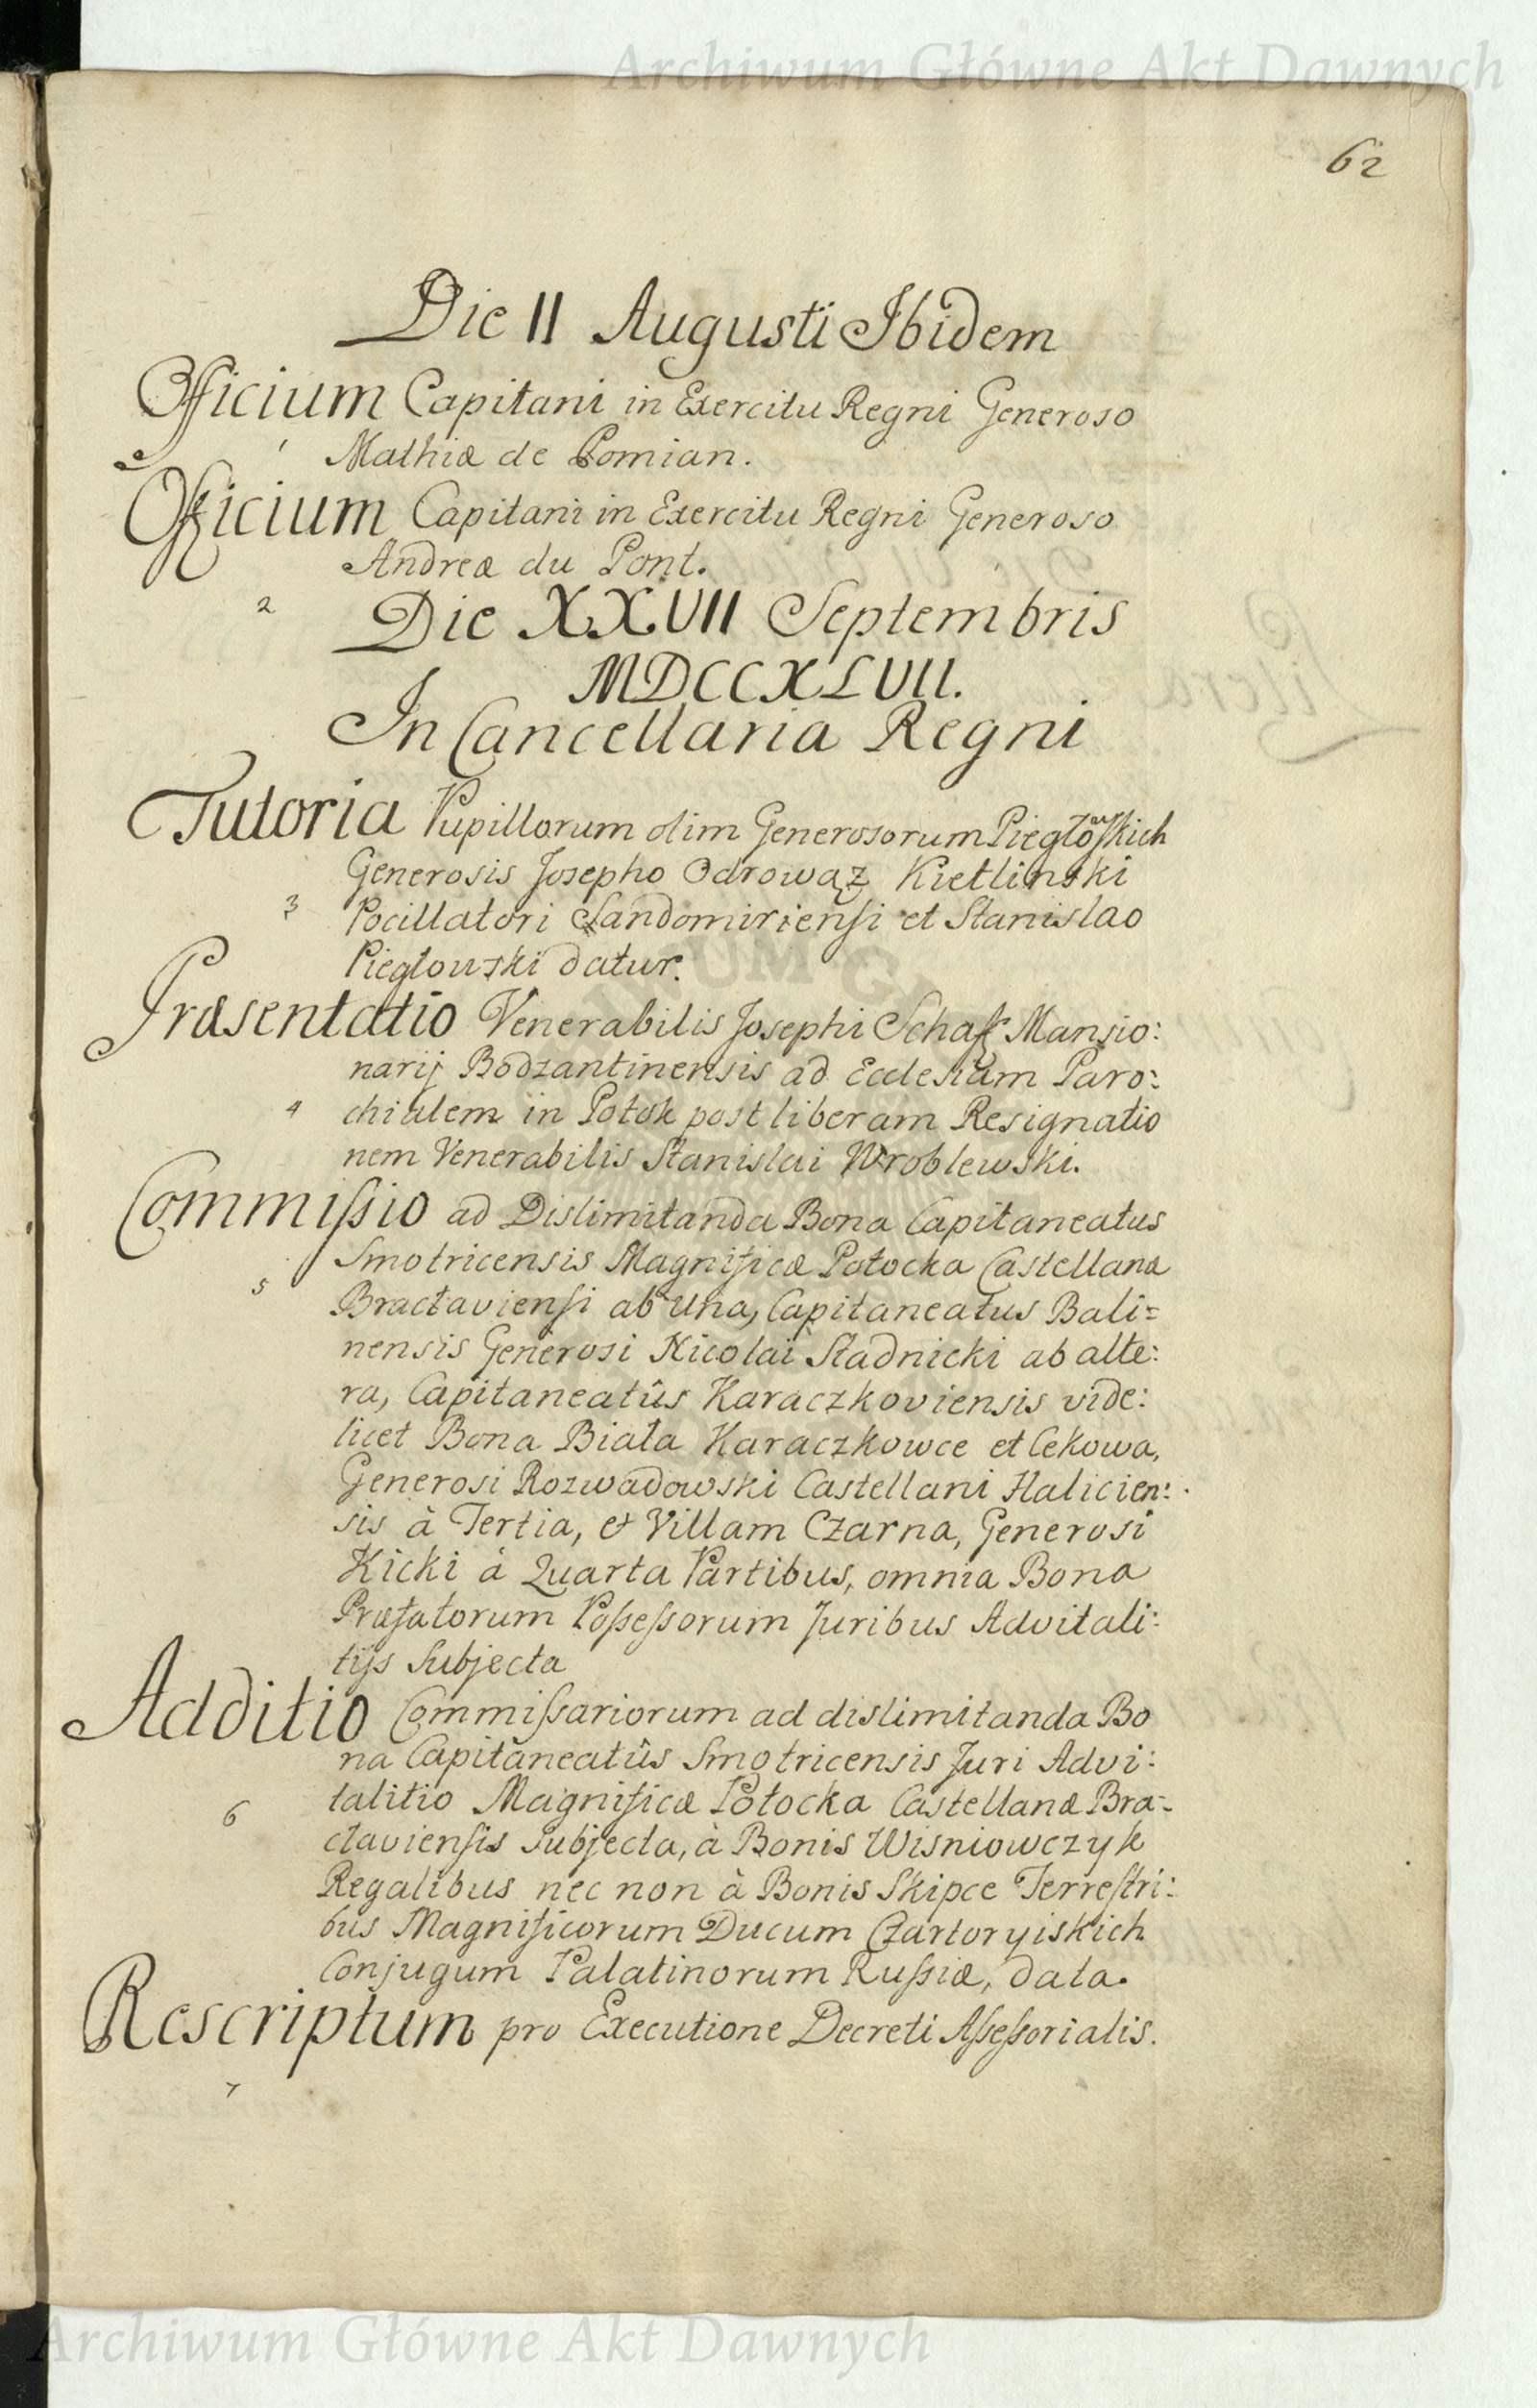 Archiwum Główne Akt Dawnych
62
Die II Augusti Ibidem
Officium Capitani in Exercitu Regni Generoso
1 Mathiæ de Pomian.
Officium Capitani in Exercitu Regni Generoso
Andreæ du Pont.
2
Die XXVII Septembris
MDCCXLVII.
In Cancellaria Regni
Tutoria Pupillorum olim Generosorum Piegłowskich
Generosis Josepho Odrowąz Kietlinski
3 Pocillatori Sandomiriensi et Stanislao
Piegłowski datur.
Præsentatio Venerabilis Josephi Schaff Mansio:
narij Bodzantinensis ad Ecclesiam Paro:
4 chialem in Potok post liberam Resignatio
nem Venerabilis Stanislai Wroblewski.
Commissio ad Dislimitanda Bona Capitaneatus
5 Smotricensis Magnificæ Potocka Castellana
Bractaviensi ab una, Capitaneatus Bali=
nensis Generosi Nicolai Stadnicki ab alte:
ra, Capitaneatûs Karaczkoviensis vide:
licet Bona Biała Karaczkowce et Cekowa,
Generosi Rozwadowski Castellani Halicien:
sis à Tertia, et Villam Czarna, Generosi
Kicki à Quarta Partibus, omnia Bona
Præfatorum Possessorum Juribus Advitali:
tijs Subjecta
Additio Commissariorum ad dislimitanda Bo
na Capitaneatûs Smotricensis Juri Advi:
6 talitio Magnificæ Potocka Castellanæ Bra=
ctaviensis subjecta, à Bonis Wisniowczyk
Regalibus nec non à Bonis Skipce Terrestri:
bus Magnificorum Ducum Czartoryiskich
Conjugum Palatinorum Russiæ, data.
Rescriptum pro Executione Decreti Assessorialis.
7
Archiwum Główne Akt Dawnych